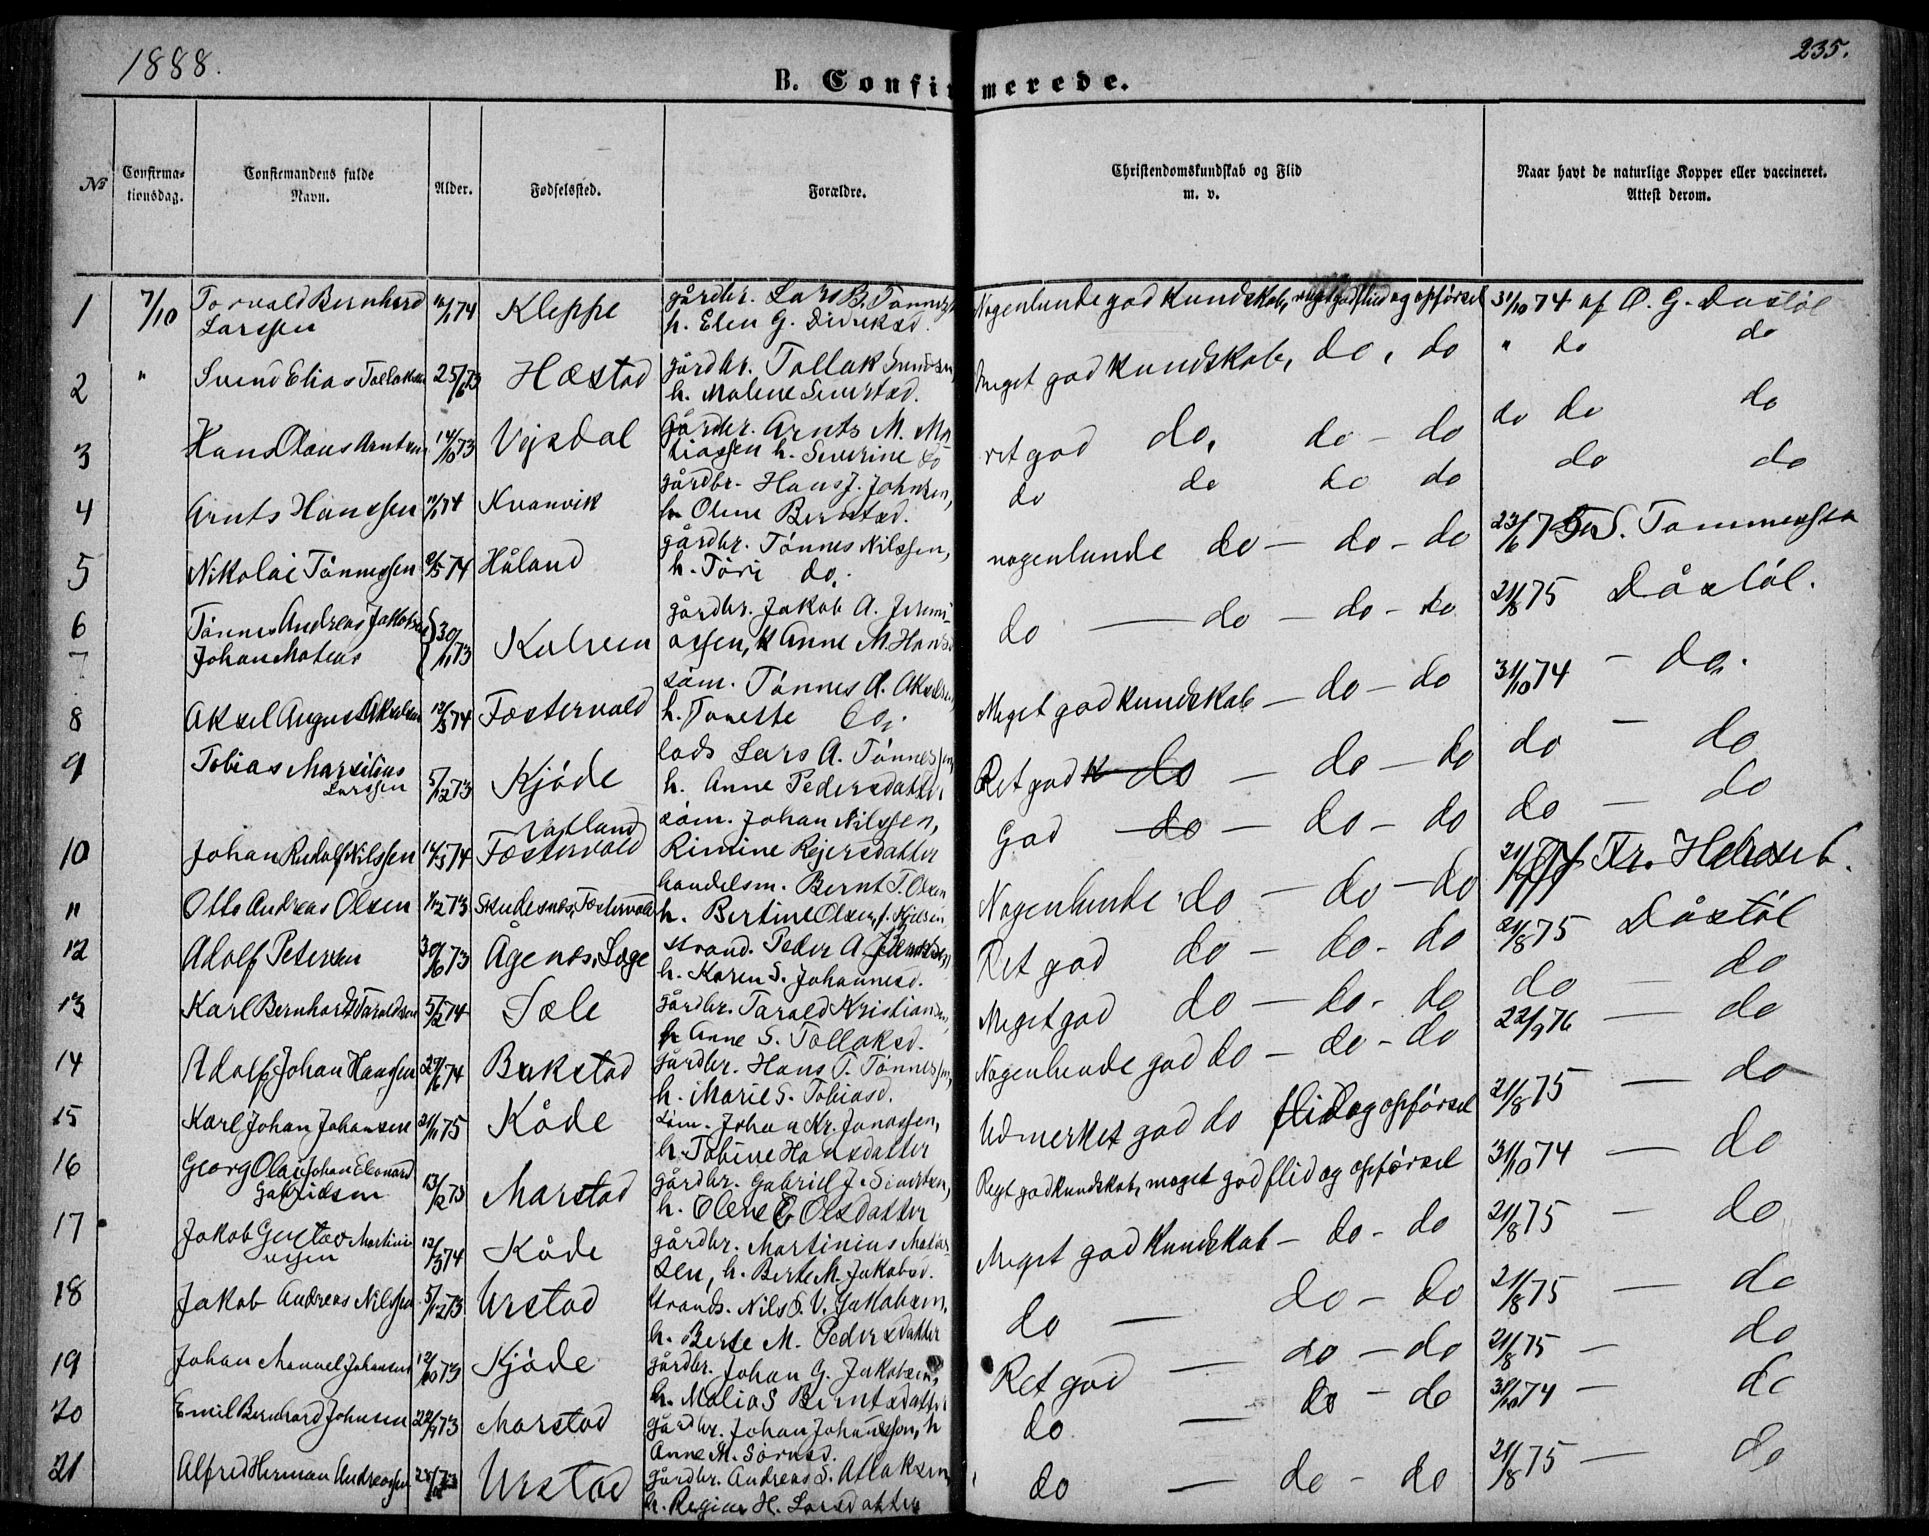 1888.
235.
B. Confirmerede.
No
Confirma-
tionsdag.
Confirmandens fulde
Navn.
Alder.
Fødselssted.
Forældre.
Christendomskundskab og Flid
m. v.
Naar havt de naturlige Kopper eller vaccineret.
Attest derom.
1 7/10 Torvald Bernhard Kleppe gårdbr. Lars B. Tønness
Larssen h. Elen G. Didriksd.
Nogenlunde god kundskab, meget god flid og opførsel 31/10 74 af O. G. Dastøl
2 " Svend Elias Tollaksen 25/6 73 Hæstad gårdbr. Tollak Svendsen,
h. Malene Sivertsd.
Meget god kundskab, do, do " do do
3 Hans Olaus Arntsen 14/10 73 Vejsdal gårdbr. Arnts M. Ma-
tiassen h. Severine do
ret god do, do - do do do do
4 Arnts Hanssen Kvanvik gårdbr. Hans J. Johnsen,
h Olene Berntsd.
do do do do do do
5 Nikolai Tønnessen Håland gårdbr. Tønnes Nilssen,
h. Tøri do.
nogenlunde do - do - do 23/6 75 S. Tommesstn
6 Tønnes Andreas Jakobsen gårdbr. Jakob A. Jeremi-
7 Johan Mateus 30/11 73 Kalven assen, h Anne M. Hansd
do - do - do - do 21/8 75 Dåstøl.
8 Aksel August Akselsen 12/3 74 Fostervold søm. Tønnes A. Akselsen
h. Toneste
Meget god kundskab - do - do 31/10 74 - do.
9 Tobias Marselius 5/12 73 Kjøde lods Lars A. Tønnessen,
Larssen h. Anne Pedersdatter
Ret god k do - do - do do - do
10 Johan Rudolf Nilssen 14/3 74 Vatland søm. Johan Nilssen,
Fostervold Rimine Rejersdatter
God do - do - do do - do
11 Otto Andreas Olsen Skudesnes, Fostervold handelsm. Bernt T. Olsen
h. Bertine Olsen, f. Kjelsen
Nogenlunde do - do - do Fr. Holst
12 Adolf Petersen 30/6 73 Ågenes, Loge strand. Peder A.
h. Karen S. Johannesd.
Ret god do - do - do 21/8 75 Dåstøl
13 Karl Bernhard Taraldsen 5/2 74 Sæle gårdbr. Tarald Kristiansen,
h Anne S. Tollaksd.
Meget god do - do - do do - do
14 Adolf Johan Hanssen 29/6 74 Bukstad gårdbr. Hans T. Tønnessen,
h. Marie S. Tobiasd.
Nogenlunde god do - do - do 22/9 76 - do
15 Karl Johan Johansen 21/1 75 Kåde søm. Johan Kr. Jonassen,
h. Tobine Hansdatter
Udmerket god do flid og opførsel 21/8 75 - do
16 Georg Olai Johan Elonard 13/12 73 Marstad gårdbr. Gabriel J. Sivertsen,
Gabrielsen h. Olene E Olsdatter
Ret god kundskab, meget god flid og opførsel 31/10 74 - do
17 Jakob Gustav Martini- 12/3 74 Kåde gårdbr. Martinius Matis-
ussen sen, h. Berte M. Jakobsd.
Meget god kundskab - do - do 21/8 75 - do
18 Jakob Andreas Nilssen 5/12 73 Urstad strands. Nils S. V. Jakobsen.
h. Berte M. Pedersdatter
do - do - do 21/8 75 - do
19 Johan Manuel Johansen 12/10 73 Kjøde gårdbr. Johan G. Jakobsen,
h. Malia S Berntsdatter
Ret god - do - do 21/8 75 - do
20 Emil Bernhard Johnsen 22/9 73 Marstad gårdbr. Johan Johannessen, h
Anne M. Sørensd.
do - do - do 31/10 74 - do
21 Alfred Herman Andreassen Urstad gårdbr. Andreas S. Atlaksen
h. Regine H. Larsdatter
do - do - do 21/8 75 - do